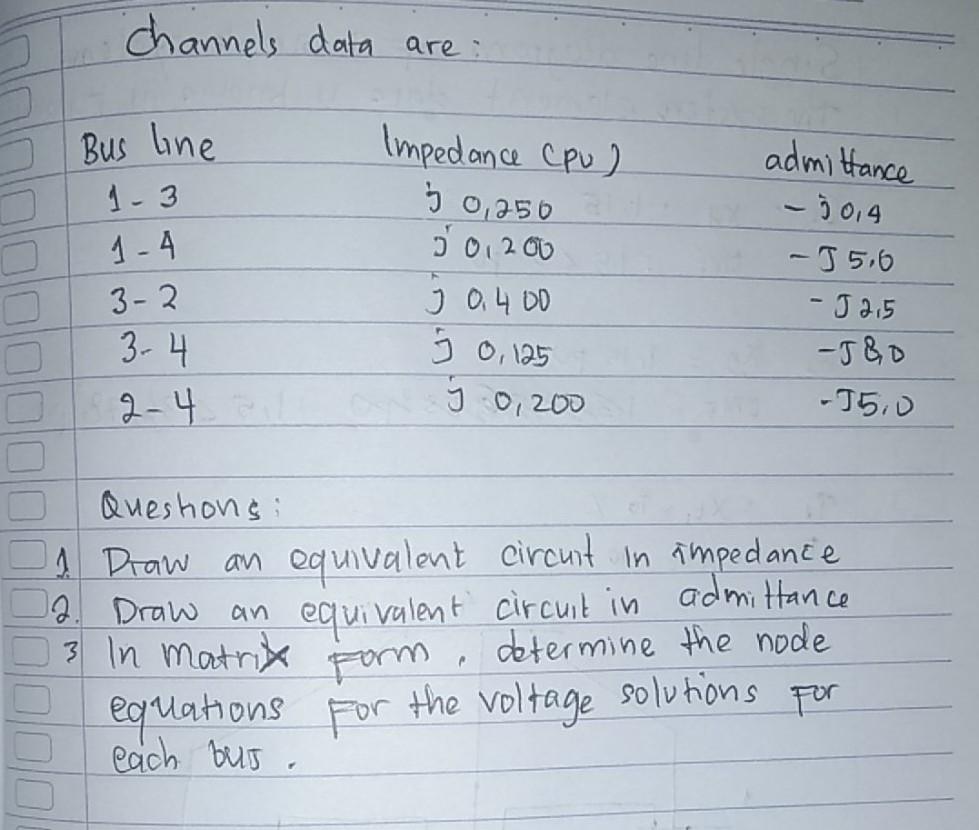 Channels data are:
Bus line Impedance (pu) admittance
1-3 j 0,250 - j 0,4
1-4 j 0,200 - J 5,0
3-2 j 0.400 - J 2,5
3-4 j 0,125 - J 8,0
2-4 j 0,200 - J5,0
Questions:
1. Draw an equivalent circuit in impedance
2. Draw an equivalent circuit in admittance
3 In matrix form, determine the node
equations for the voltage solutions for
each bus.